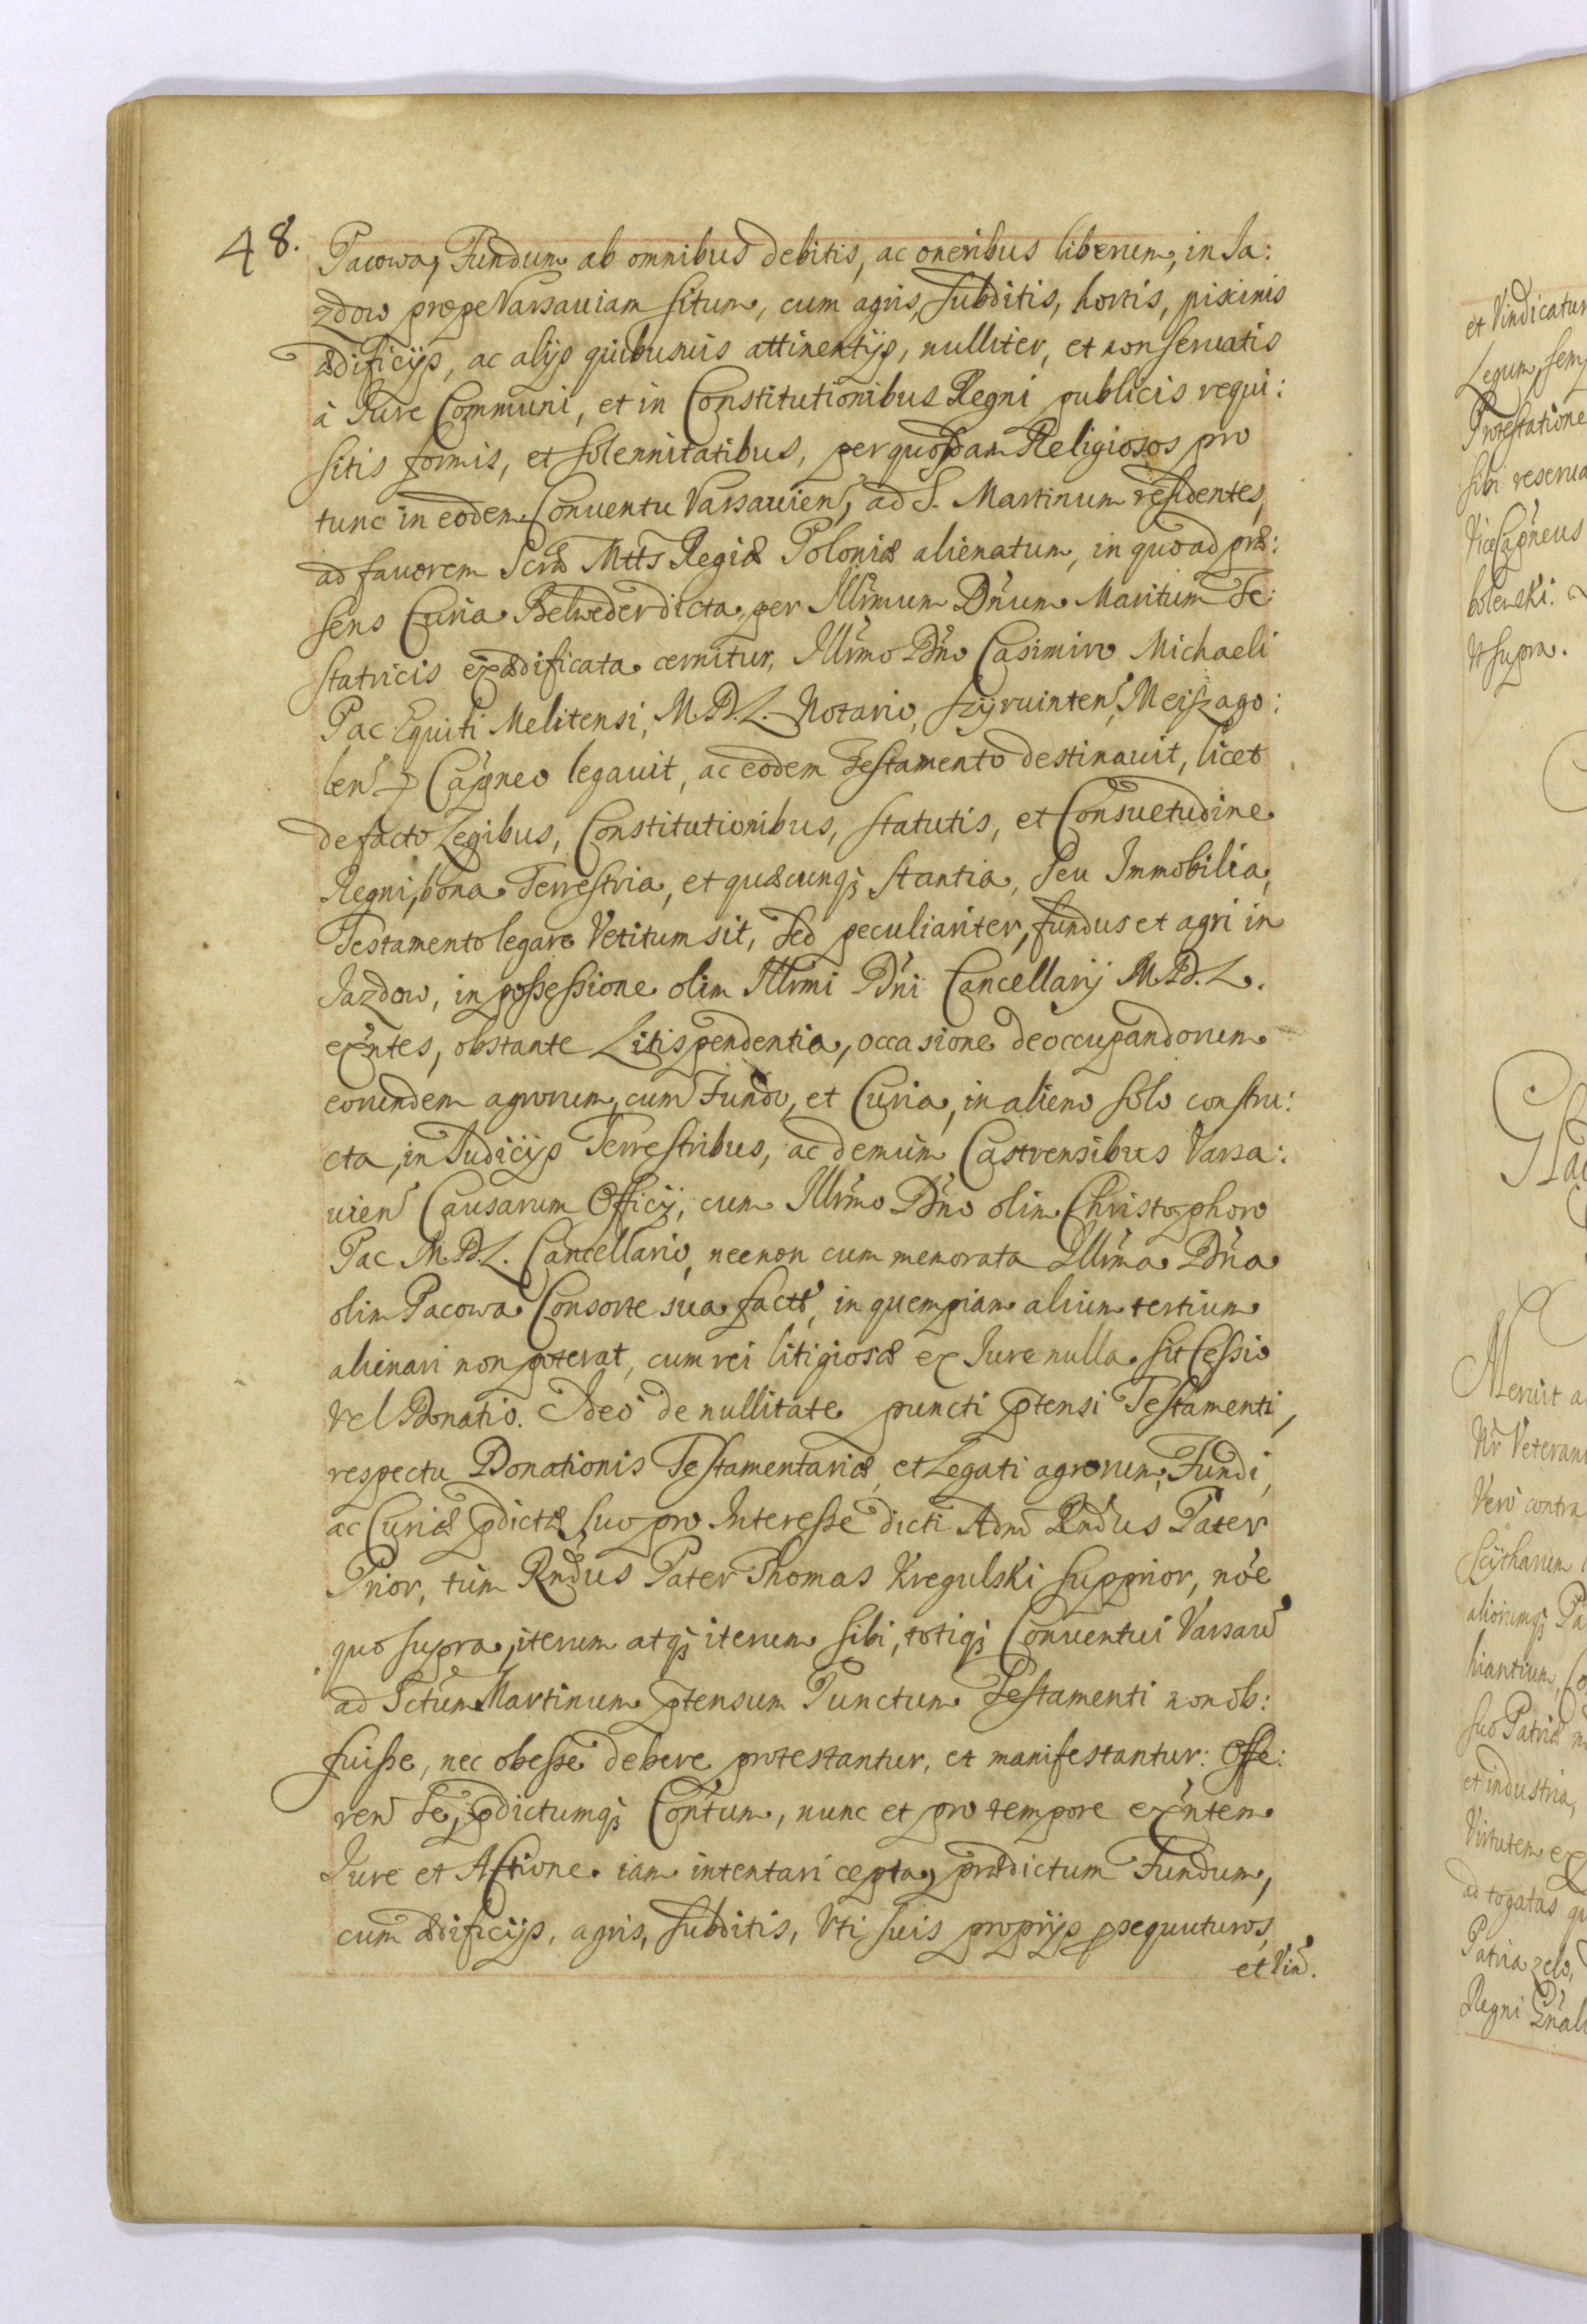 48.
Pacowa, Fundum ab omnibus debitis, ac oneribus liberum, in Ja:
zdow prope Varsauiam situm, cum agris, subditis, hortis, piscinis
ædificijs, ac alijs quibusuis attinentijs, nulliter, et non seruatis
à Jure Communi, et in Constitutionibus Regni publicis requi:
sitis formis, et solennitatibus, per quosdam Religiosos pro
tunc in eodem Conuentu Varsauien, ad S. Martinum residentes,
ad fauorem Scræ Mtts Regiæ Poloniæ alienatum, in quo ad præ:
sens Curia Belweder dicta, per Illrmum Dnum Maritum Te:
statricis exædificata cernitur, Illrmo Dno Casimiro Michaeli
Pac Equiti Melitensi, M.D.L. Notario, Szyruinten, Meiszago:
len Capneo legauit, ac eodem Testamento destinauit, licet
de facto Legibus, Constitutionibus, statutis, et Consuetudine
Regni, bona Terrestria, et quæcunq; stantia, seu Immobilia,
Testamento legare Vetitum sit, sed peculiariter, fundus et agri in
Jazdow, in possessione olim Illrmi Dni Cancellarij M.D.L.
exntes, obstante Litispendentia, occasione deoccupandorum
eorundem agrorum, cum Fundo, et Curia, in alieno solo constru:
cta, in Judicijs Terrestribus, ac demum Castrensibus Varsa:
uien Causarum Officij, cum Illrmo Dno olim Christophoro
Pac M.D.L. Cancellario, necnon cum memorata Illrma Dna
olim Pacowa Consorte sua factæ, in quempiam alium tertium
alienari non poterat, cum rei litigiosæ ex Jure nulla sit Cessio
vel Donatio. Adeo de nullitate puncti ptensi Testamenti,
respectu Donationis Testamentariæ, et Legati agrorum, Fundi,
ac Curiæ pdictæ, suo pro Interesse dicti Adm Rndus Pater
Prior, tum Rndus Pater Thomas Kregulski supprior, noe
quo supra, iterum atq; iterum sibi, totiq; Conuentui Varsau
ad Sctum Martinum ptensum Punctum Testamenti non ob:
fuisse, nec obesse debere protestantur, et manifestantur: Offe:
ren se, pdictumq; Contum, nunc et pro tempore exntem
Jure et Actione iam intentari cepta, prædictum Fundum,
cum ædificijs, agris, subditis, Uti suis proprijs psequuturos,
et Vin.
et Vindicatur
Legum, sem
Protestatione
sibi reserua
Vice Capneus
bolenski.
Ut supra.
Meruit a
Vr Veteran
Vero contra
Scytharum
aliorumq; Pa
hiantium, Co
suo Patriæ
et industria,
Virtutem ex
ad togatas qu
Patria zelo,
Regni Gnal